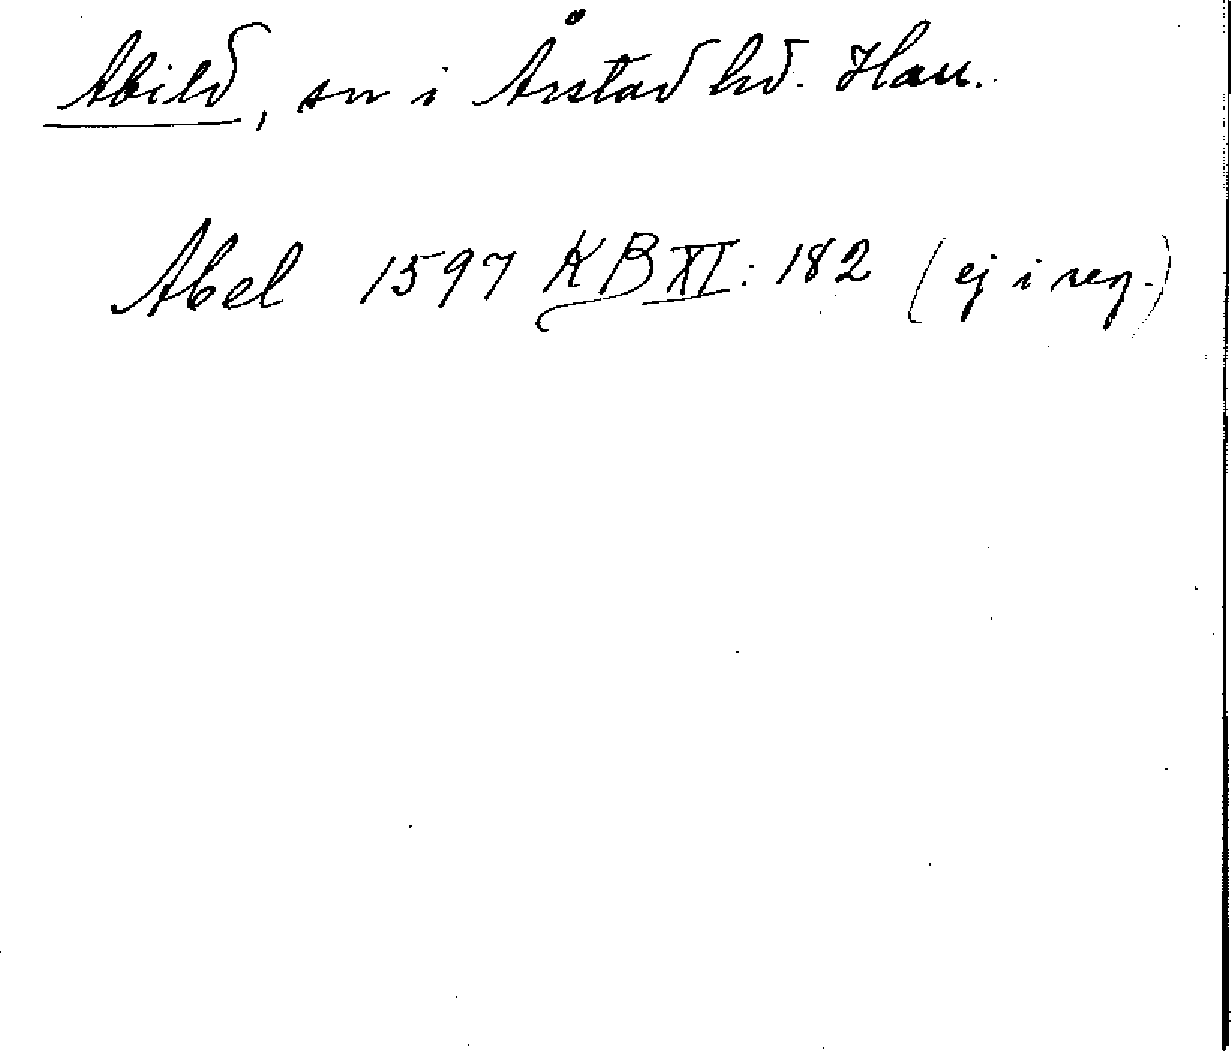 Abild, sn i Årstad hd. Hall.
Abel 1597 KB XI: 182 (ej i reg.)